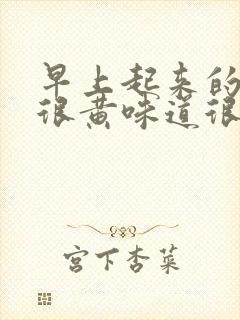 早上起来的
很黄味道很
宫下杏菜